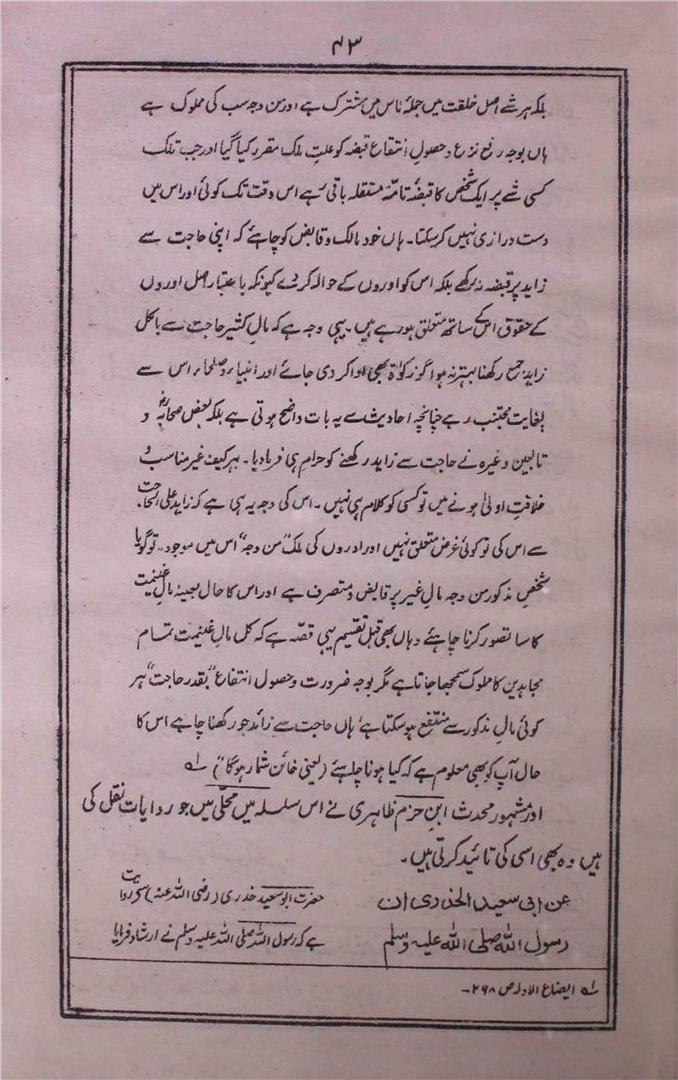 ۴۳
بلکہ ہر شے اصل خلقت میں جملہ ناس میں مشترک ہے اور من وجہ سب کی مملوک ہے
ہاں بوجہ رفع نزاع و حصول انتفاع قبضہ کو علت ملک مقرر کیا گیا اور جب تلک
کسی شے پر ایک شخص کا قبضہ تامہ مستقلہ باقی ہے اس وقت تک کوئی اور اس میں
دست درازی نہیں کر سکتا۔ ہاں خود مالک و قابض کو چاہئے کہ اپنی حاجت سے
زاید پر قبضہ نہ رکھے بلکہ اس کو اوروں کے حوالہ کر دے کیونکہ باعتبار اصل اوروں
کے حقوق اس کے ساتھ متعلق ہو رہے ہیں۔ یہی وجہ ہے کہ مال کثیر حاجت سے بالکل
زاید جمع رکھنا بہتر نہ ہوا گو زکوٰۃ بھی ادا کر دی جائے اور انبیاء و صلحاء اس سے
بغایت مجتنب رہے چنانچہ احادیث سے یہ بات واضح ہوتی ہے بلکہ بعض صحابہؓ و
تابعین وغیرہ نے حاجت سے زاید رکھنے کو حرام ہی فرما دیا۔ بہر کیف غیر مناسب و
خلاف اولیٰ ہونے میں تو کسی کو کلام ہی نہیں۔ اس کی وجہ یہی ہے کہ زاید علی الحاجت
سے اس کی تو کوئی غرض متعلق نہیں اور اوروں کی ملک "من وجہ" اس میں موجود۔ تو گویا
شخص مذکور من وجہ مال غیر پر قابض و متصرف ہے اور اس کا حال بعینہ مال غنیمت
کا سا تصور کرنا چاہئے وہاں بھی قبل تقسیم یہی قصہ ہے کہ کل مال غنیمت تمام
مجاہدین کا مملوک سمجھا جاتا ہے مگر بوجہ ضرورت و حصول انتفاع "بقدر حاجت" ہر
کوئی مال مذکور سے منتفع ہو سکتا ہے ہاں حاجت سے زائد جو رکھنا چاہے اس کا
حال آپ کو بھی معلوم ہے کہ کیا ہونا چاہئے (یعنی خائن شمار ہوگا") ؎۱
اور مشہور محدث ابن حزم ظاہری نے اس سلسلہ میں محلّٰی میں جو روایات نقل کی
ہیں وہ بھی اسی کی تائید کرتی ہیں۔
عن ابی سعید الخدری ان
حضرت ابو سعید خدری (رضی اللہ عنہ) سے روایت
رسول اللہ صلی اللہ علیہ وسلم
ہے کہ رسول اللہ صلی اللہ علیہ وسلم نے ارشاد فرمایا
؎۱ ایضاع الادلہ ص ۲۶۸۔